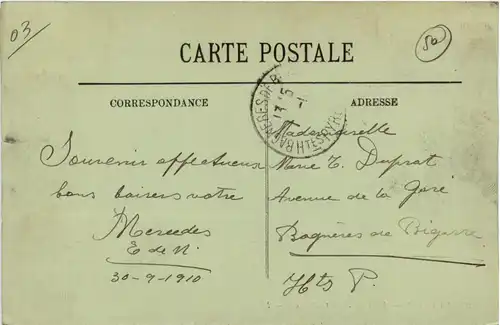 03
50
CARTE POSTALE
CORRESPONDANCE
ADRESSE
Souvenir affectueux
bons baisers votre
Mercedes
E de N.
30-9-1910
Mademoiselle
Marie T. Duprat
Avenue de la Gare
Bagnères de Bigorre
Hts P.